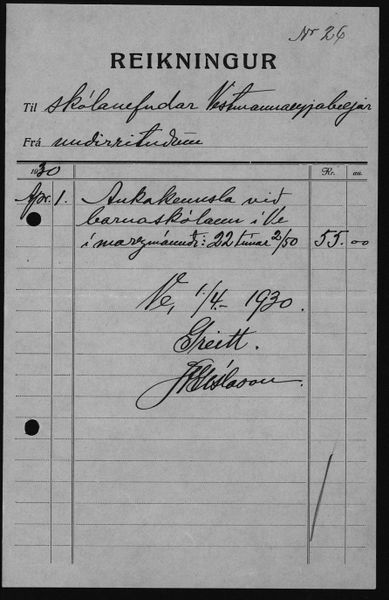 Nr 26
REIKNINGUR
Til skólanefndar Vestmannaeyjabæjar
Frá undirrituðum
1930 Kr. au.
Apr. 1. Aukakennsla við
barnaskólann í Ve
í marzmánuði: 22 tímar 2/50 55.00
Ve, 1/4 - 1930.
Greitt.
Gíslason